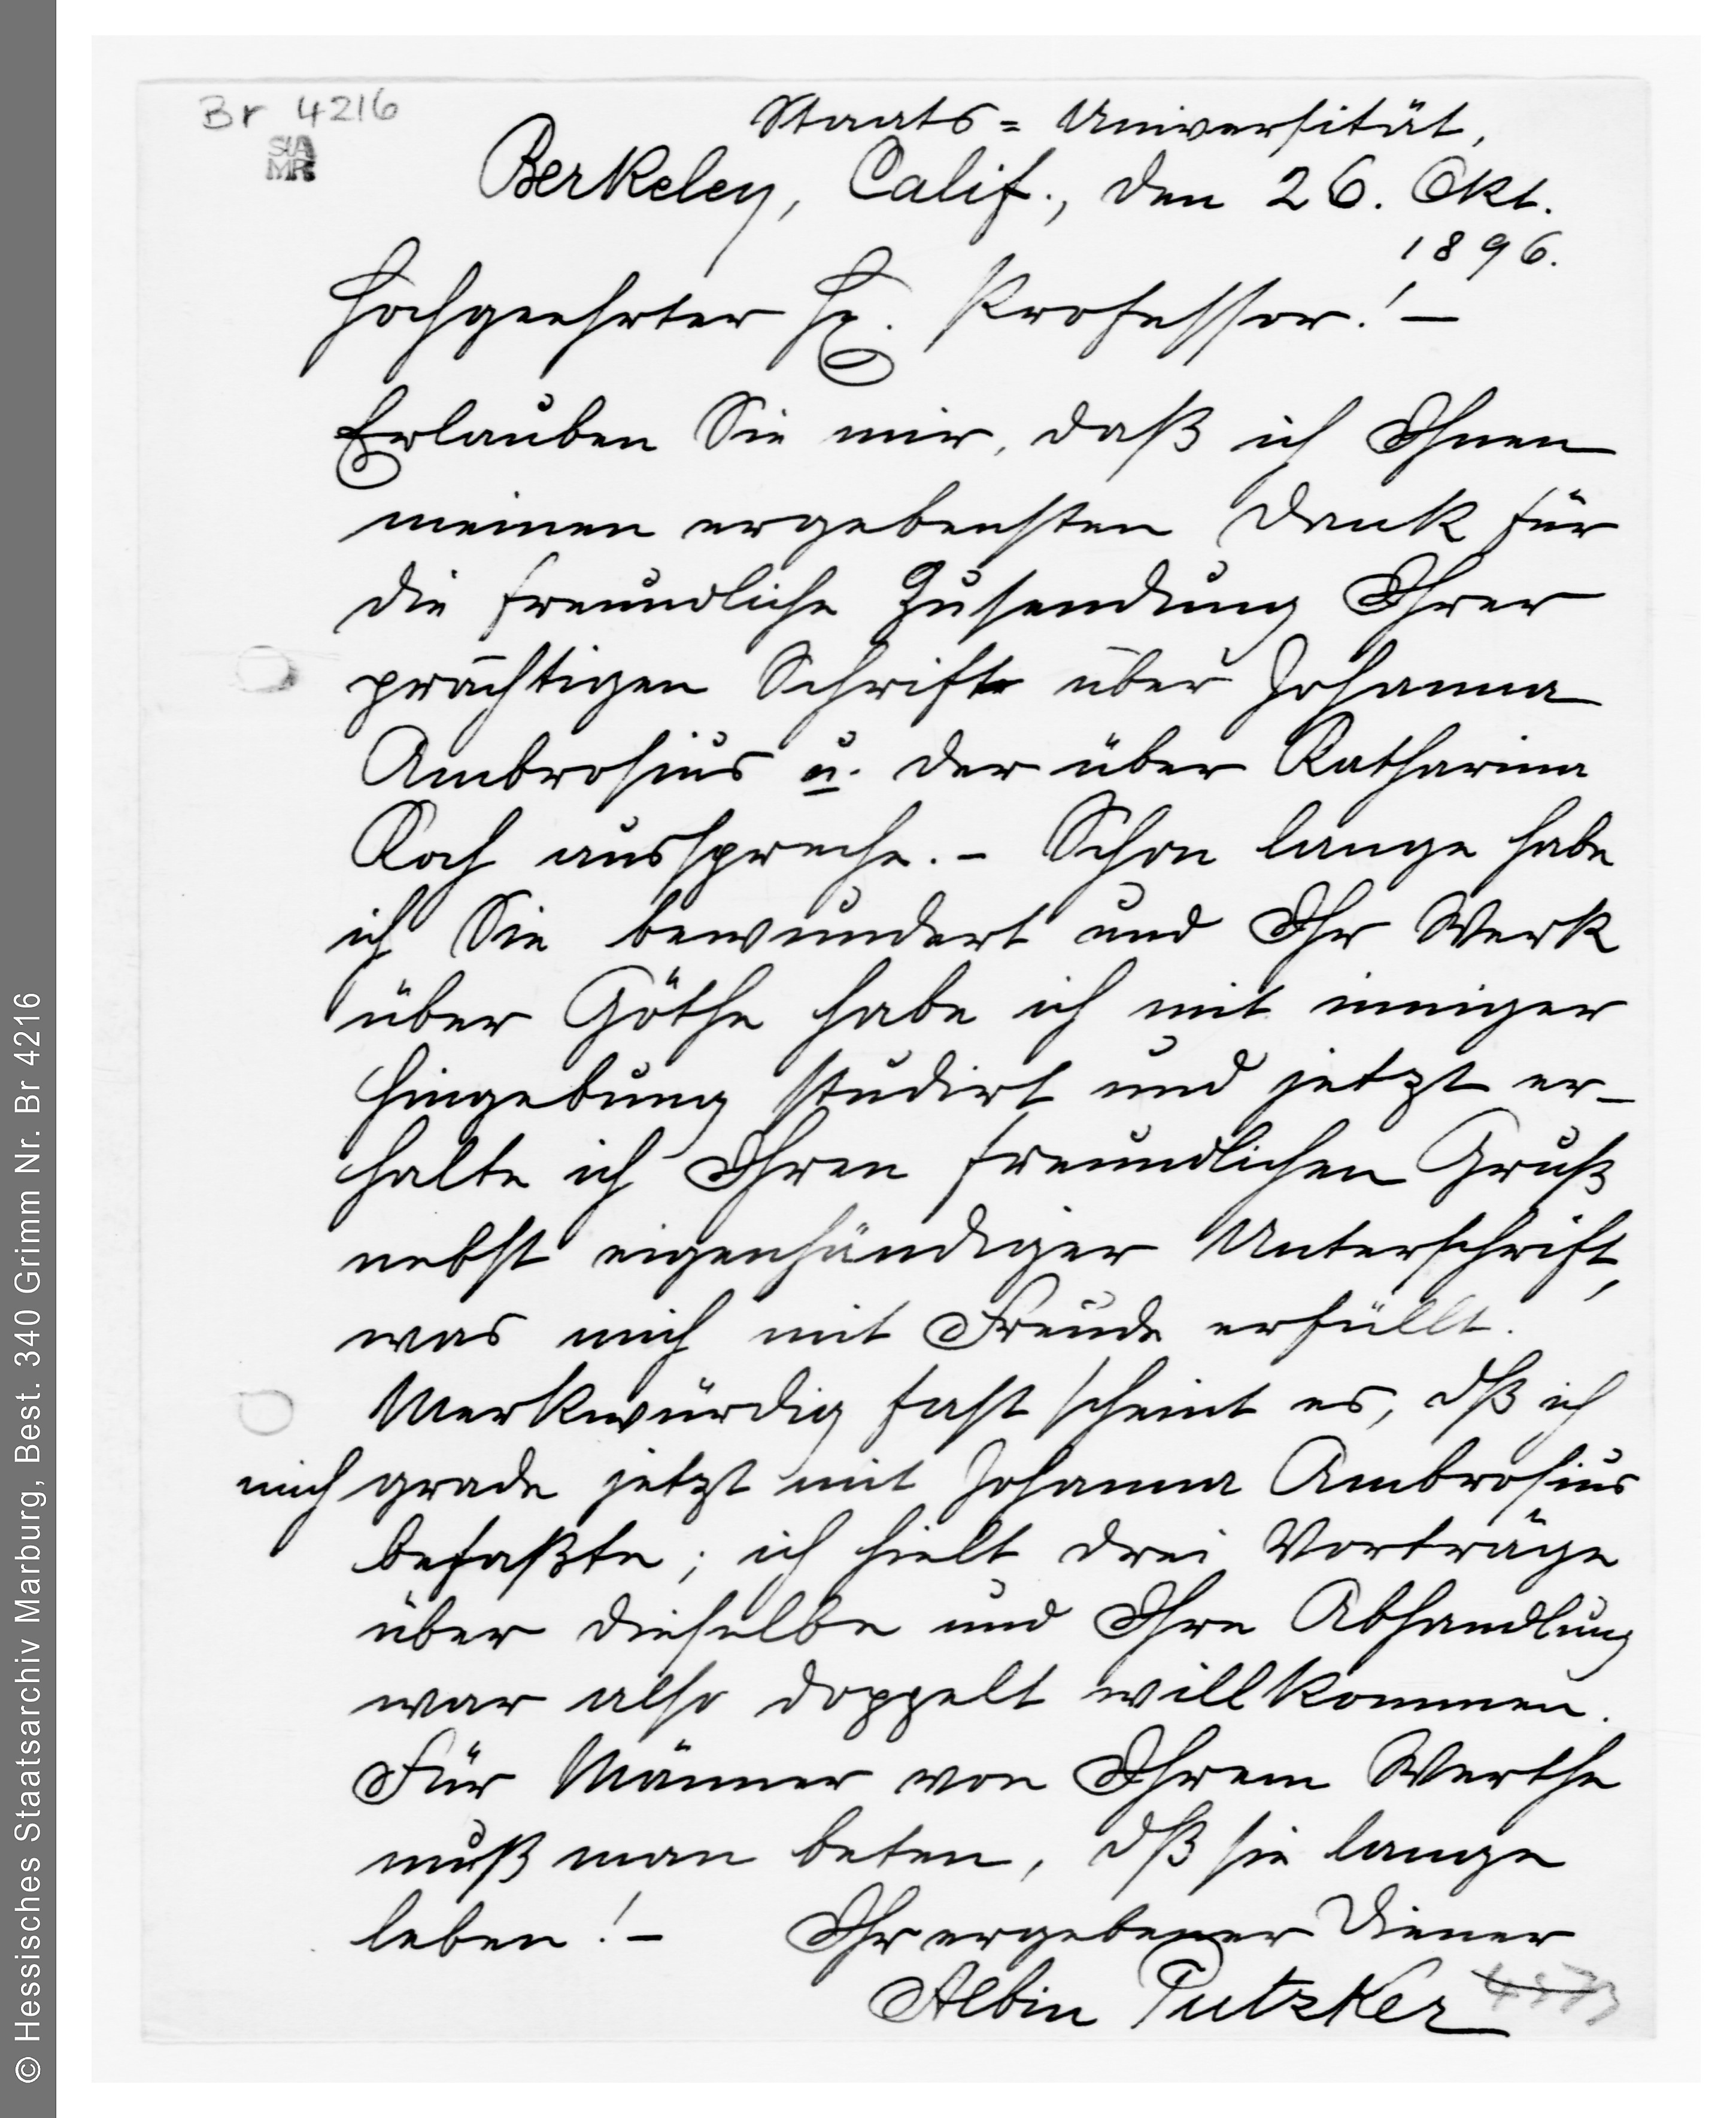 Br 4216
StA
MR
Staats = Universität,
Berkeley, Calif., den 26. Okt.
1896.
Hochgeehrter Hr. Professor! —
Erlauben Sie mir, daß ich Ihnen
meinen ergebensten Dank für
die freundliche Zusendung Ihrer
prächtigen Schrift über Johanna
Ambrosius u. der über Katharina
Koch ausspreche. – Schon lange habe
ich Sie bewundert und Ihr Werk
über Göthe habe ich mit inniger
Hingebung studirt und jetzt er-
halte ich Ihren freundlichen Gruß
nebst eigenhändiger Unterschrift,
was mich mit Freude erfüllt.
Merkwürdig fast scheint es, dß ich
mich grade jetzt mit Johanna Ambrosius
befaßte; ich hielt drei Vorträge
über dieselbe und Ihre Abhandlung
war also doppelt willkommen.
Für Männer von Ihrem Werthe
muß man beten, dß sie lange
leben! – Ihr ergebener Diener
Albin Putzker
© Hessisches Staatsarchiv Marburg, Best. 340 Grimm Nr. Br 4216